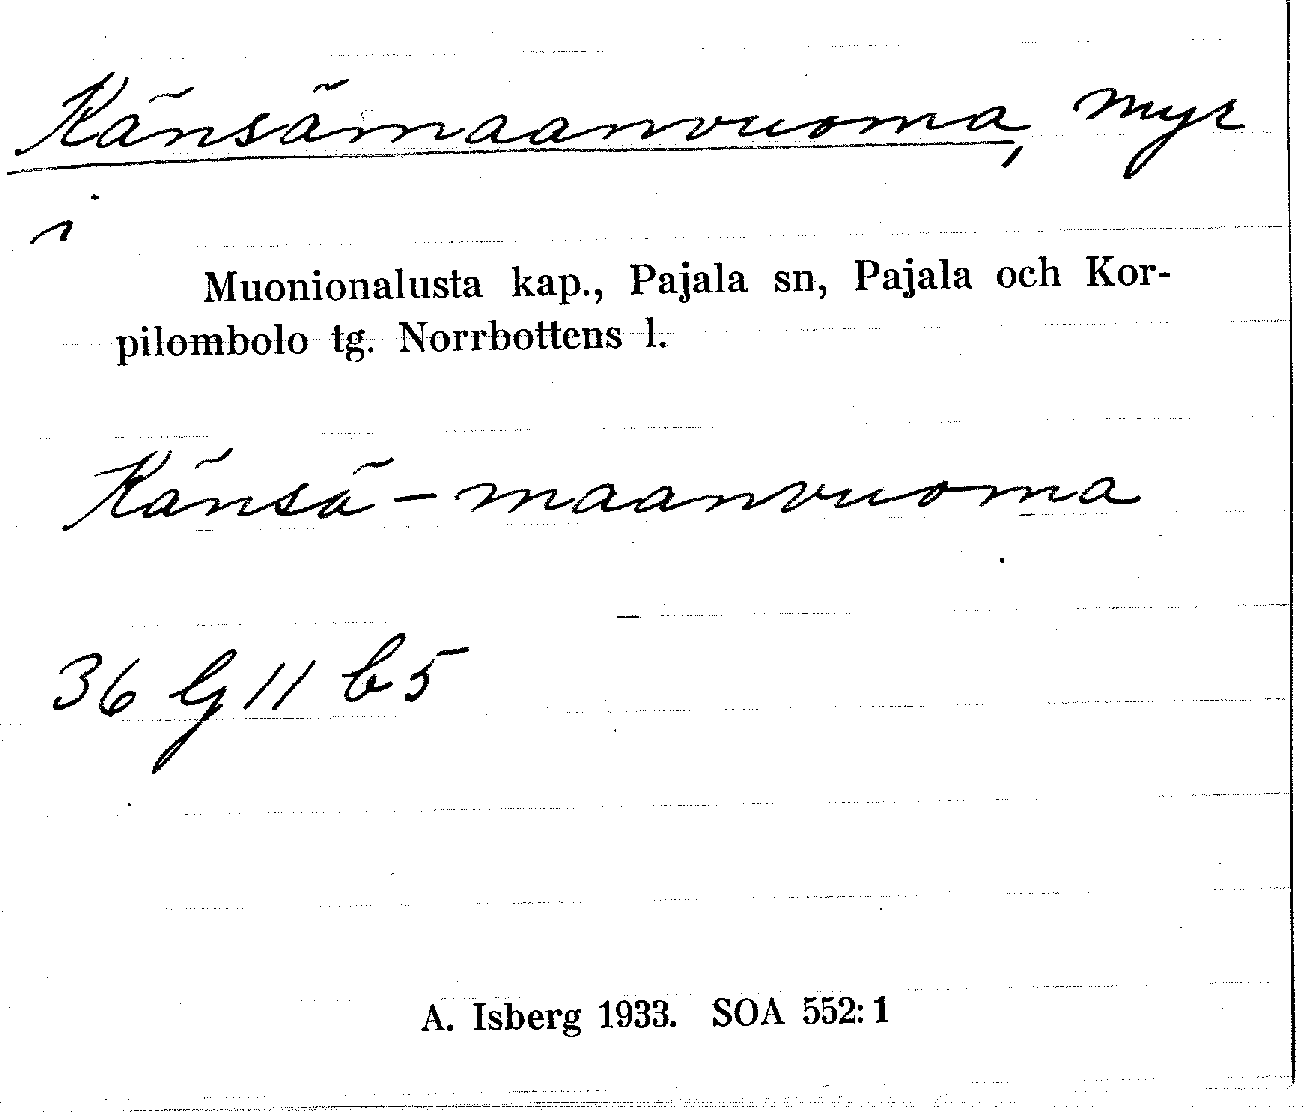 Känsämaanvuoma, myr
i
Muonionalusta kap., Pajala sn, Pajala och Kor-
pilombolo tg. Norrbottens l.
Känsä-maanvuoma
36 G 11 b 5
A. Isberg 1933. SOA 552:1